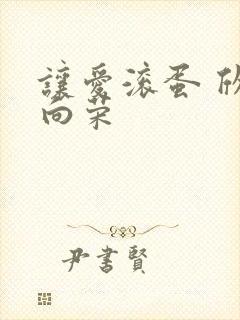 讓愛滚蛋 欣
向荣
尹書賢